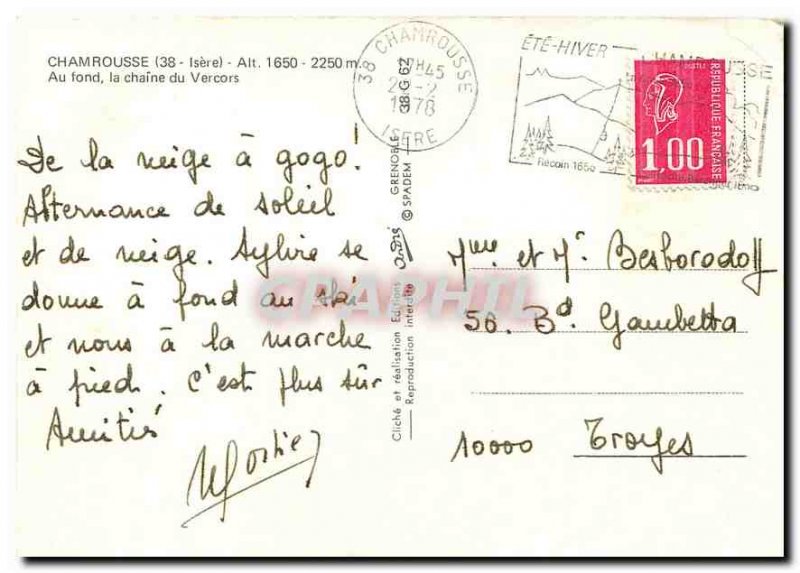 CHAMROUSSE (38 - Isère) - Alt. 1650 - 2250 m.
Au fond, la chaîne du Vercors
De la neige à gogo!
Alternance de soleil
et de neige. Sylvie se
donne à fond au ski
et nous à la marche
à pied. C'est plus sûr
Amitiés
CPAPHIL
Cliché et réalisation Editions André GRENOBLE
Reproduction interdite © SPADEM
38 G 62
38 CHAMROUSSE
17H45
1978
ISERE
ÉTÉ-HIVER
CHAMROUSSE
Recoin 1650
POSTES
REPUBLIQUE FRANÇAISE
1,00
Mme et Mr Besborodoff
56. Bd Gambetta
10000 Troyes